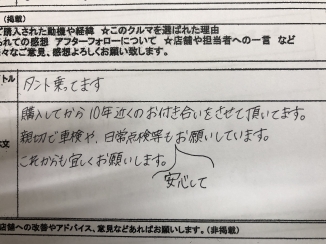 （掲載）
ご購入された動機や経緯 ★このクルマを選ばれた理由
られての感想 アフターフォローについて ★店舗や担当者への一言 など
々なご意見、感想よろしくお願い致します。
トル
タント乗ってます
購入してから10年近くのお付き合いをさせて頂いてます。
親切で車検や、日常点検等もお願いしています。
これからも宜しくお願いします。
安心して
本文
店舗への改善やアドバイス、意見などあればお願いします。（非掲載）